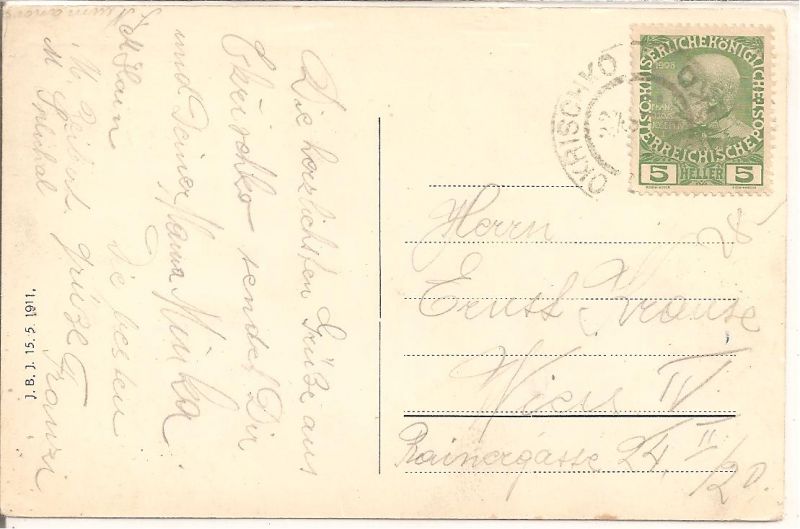 Die herzlichsten Grüße aus
Okrischko sendet Dir
und Deiner Mama Minka
Die besten
Grüße Franzi
M. Splichal
J. B. J. 15. 5. 1911.
KAISERLICHEKÖNIGLICHE
ÖSTERREICHISCHE POST
1908
5 HELLER 5
OKRISCHKO
Herrn
Ernst Krause
Wien IV
Rainergasse 24, II/20.